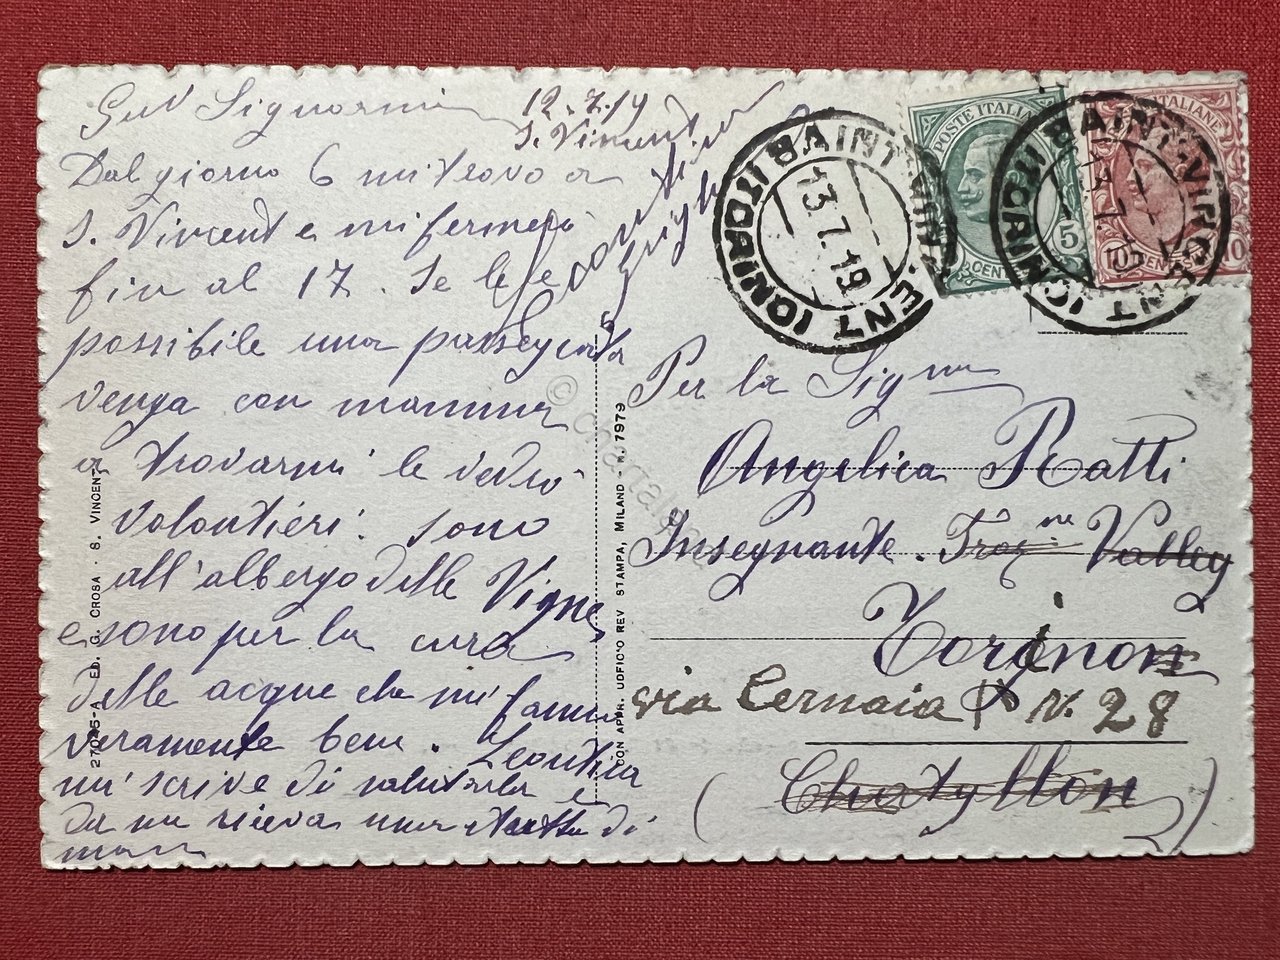 Signorina
12.7.19
S. Vincent
Dal giorno 6 mi trovo a
S. Vincent e mi fermerò
fin al 17. Se le è
possibile una passeggiata
venga con mamma
a trovarmi le vedrò
volontieri. Sono
all'albergo delle Vigne
e sono per la cura
delle acque che mi fanno
veramente bene. Leontina
mi scrive di salutarla e
da me riceva una stretta di
mano
27035-A ED. G. CROSA - S. VINCENT
CON APPR. UFFICIO REV STAMPA, MILANO - N. 7979
SAINT-VINCENT (ORINO)
13.7.19
POSTE ITALIANE
5
CENT
SAINT-VINCENT
13.7.19
ITALIANE
10 CENT 10
Per la Sig.na
Angelica Ratti
Insegnante. Fraz.ne Valley
Torinon
via Cernaia N. 28
(Chatyllon)
© cartalia